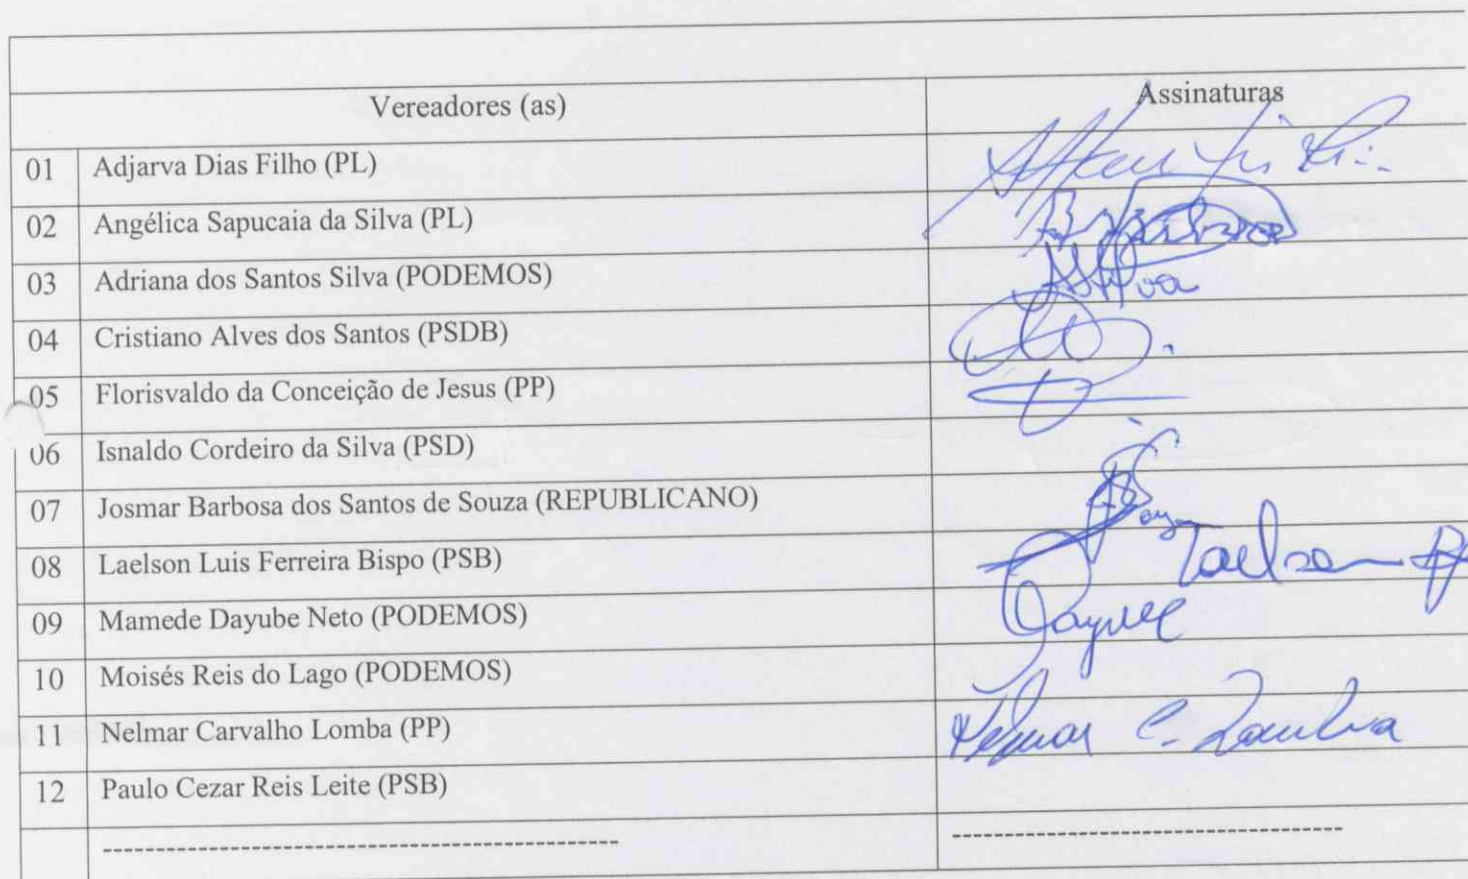 Vereadores (as) Assinaturas
01 Adjarva Dias Filho (PL)
02 Angélica Sapucaia da Silva (PL)
03 Adriana dos Santos Silva (PODEMOS)
04 Cristiano Alves dos Santos (PSDB)
05 Florisvaldo da Conceição de Jesus (PP)
06 Isnaldo Cordeiro da Silva (PSD)
07 Josmar Barbosa dos Santos de Souza (REPUBLICANO)
08 Laelson Luis Ferreira Bispo (PSB) Laelson
09 Mamede Dayube Neto (PODEMOS)
10 Moisés Reis do Lago (PODEMOS)
11 Nelmar Carvalho Lomba (PP) Nelmar C. Lomba
12 Paulo Cezar Reis Leite (PSB)